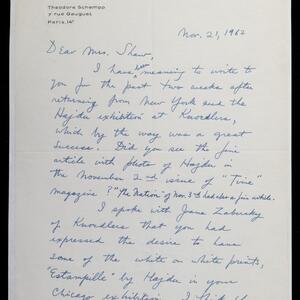 Theodore Schempp
7 rue Gauguet
Paris, 14e
Nov. 21, 1962
Dear Mrs. Shaw,
I have been meaning to write to
you for the past two weeks after
returning from New York and the
Hajdu exhibition at Knoedlers,
which by the way was a great
success. Did you see the fine
article with photo of Hajdu in
the November 2nd issue of "Time"
magazine? "The Nation" of Nov. 3rd had also a fine article.
I spoke with Jane
of Knoedlers that you had
expressed the desire to have
some of the white on white prints,
"Estampille" by Hajdu in your
Chicago exhibition.